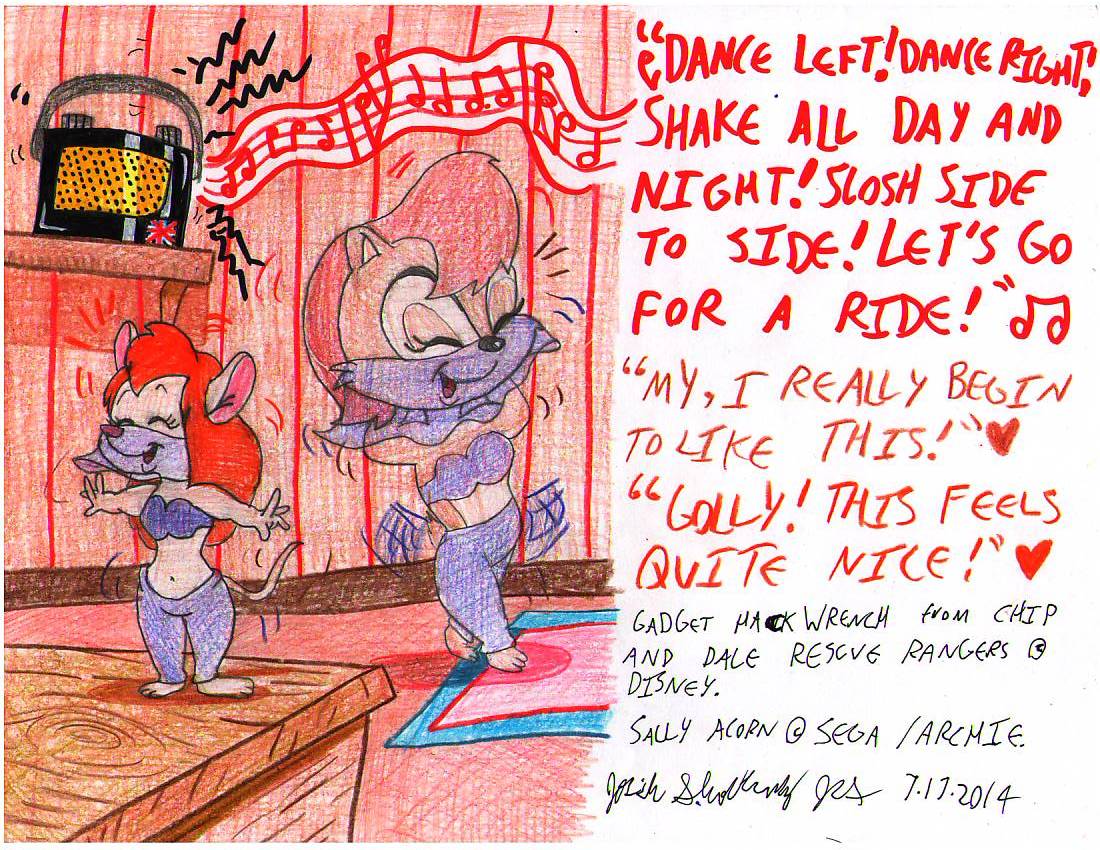 “DANCE LEFT! DANCE RIGHT!
SHAKE ALL DAY AND
NIGHT! SLOSH SIDE
TO SIDE! LET'S GO
FOR A RIDE!” ♫
“MY, I REALLY BEGIN
TO LIKE THIS!” ♥
“GOLLY! THIS FEELS
QUITE NICE!” ♥
GADGET HACKWRENCH from CHIP
AND DALE RESCUE RANGERS ©
DISNEY.
SALLY ACORN @ SEGA / ARCHIE.
7.17.2014